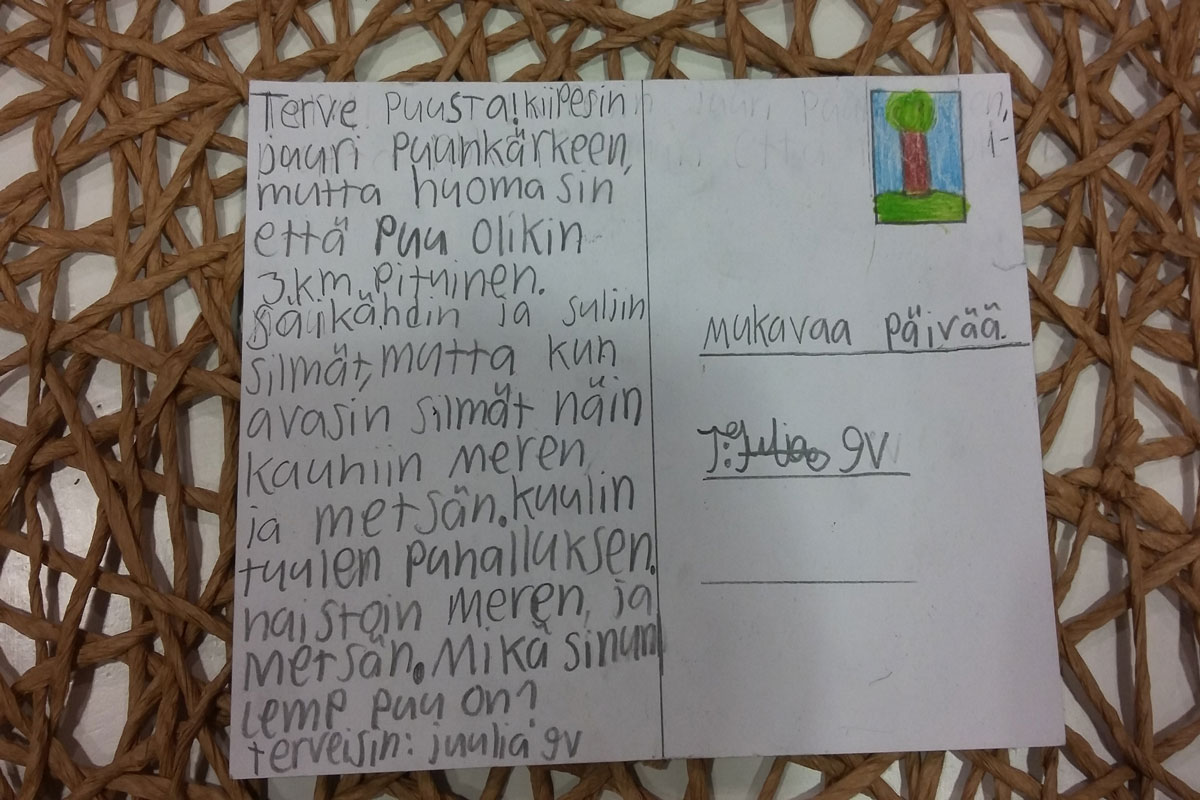 Terve Puusta! kiipesin
juuri puunkärkeen,
mutta huoma sin
että Puu olikin
3.km. pituinen.
Säikähdin ja suljin
silmät, mutta kun
avasin silmät näin
kauniin meren
ja metsän. Kuulin
tuulen puhalluksen.
haistoin meren, ja
metsän. Mikä sinun
lemp puu on?
terveisin: juulia 9v
Mukavaa päivää.
T: Julia 9v